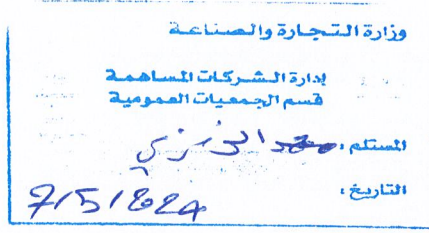 وزارة التجارة والصناعة
إدارة الشركات المساهمة
قسم الجمعيات العمومية
المستلم :
التاريخ : 7/5/2024